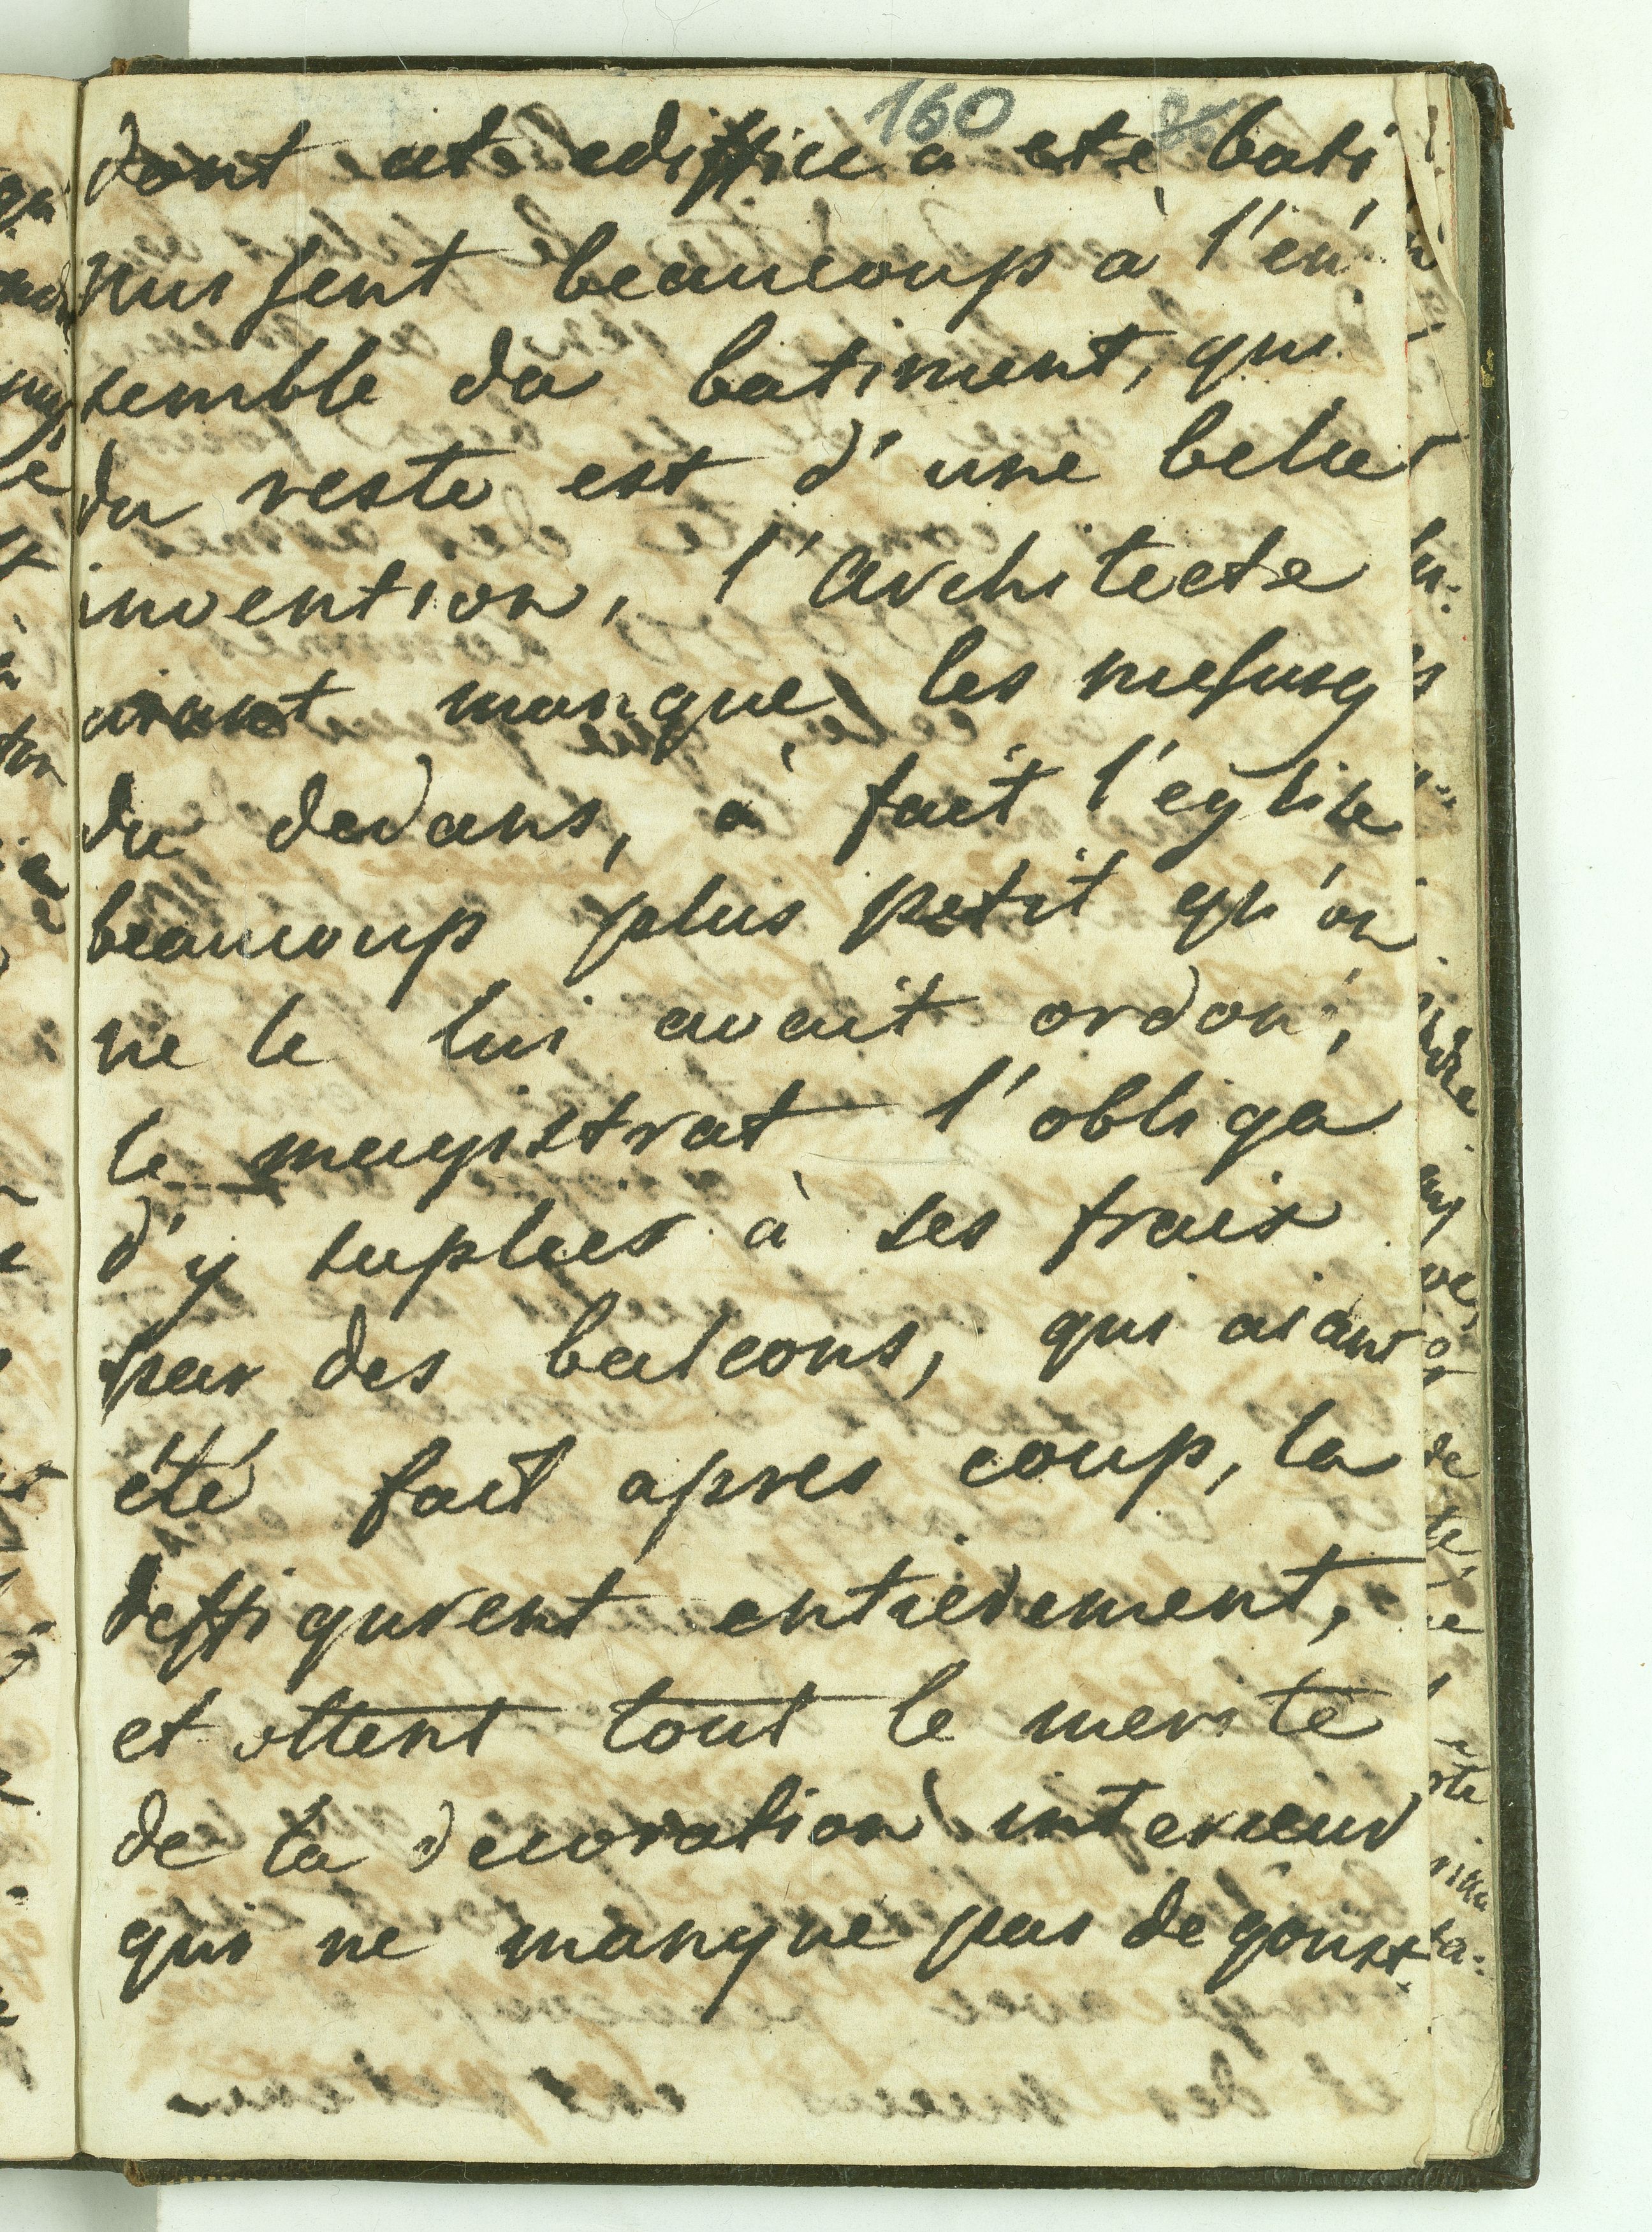 160
dont cet ediffice a eté bati
nuisent beaucoup à l'en
semble du batiment, qui
du reste est d'une belle
invention, l'architecte
aiant manque les mesures
du dedans, à fait l'eglise
beaucoup plus petit qu'on
ne le lui avait ordon;
le magistrat l'obliga
d'y supleer à ses frais
par des balcons, qui aiant
été fait apres coup, la
deffigurent entierement,
et ottent tout le merite
de la decoration interieur
qui ne manque pas de goust.